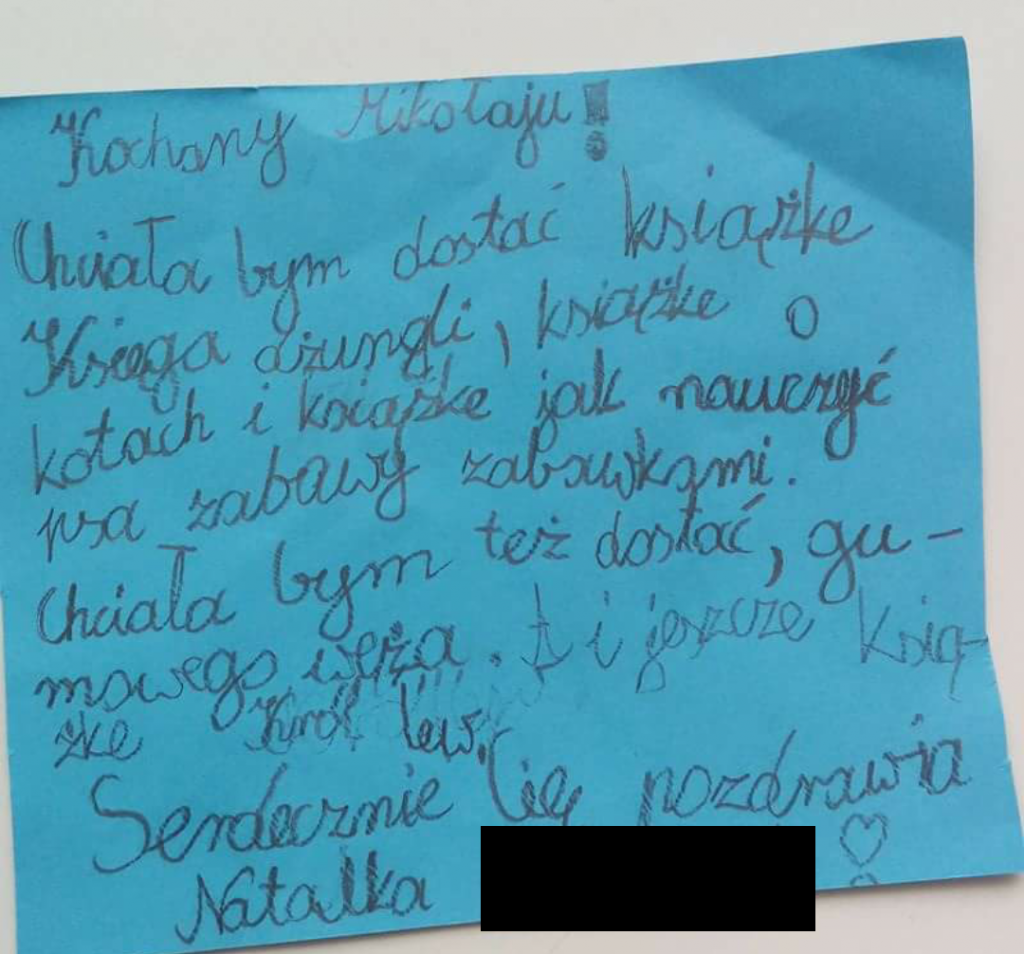 Kochany Mikołaju!
Chciała bym dostać książke
Księga dżungli, książke o
kotach i książke jak nauczyć
psa zabawy zabawkami.
Chciała bym też dostać, gu-
mowego węża. i jeszcze ksią-
żke Król lew.
Serdecznie Cię pozdrawia
Natalka